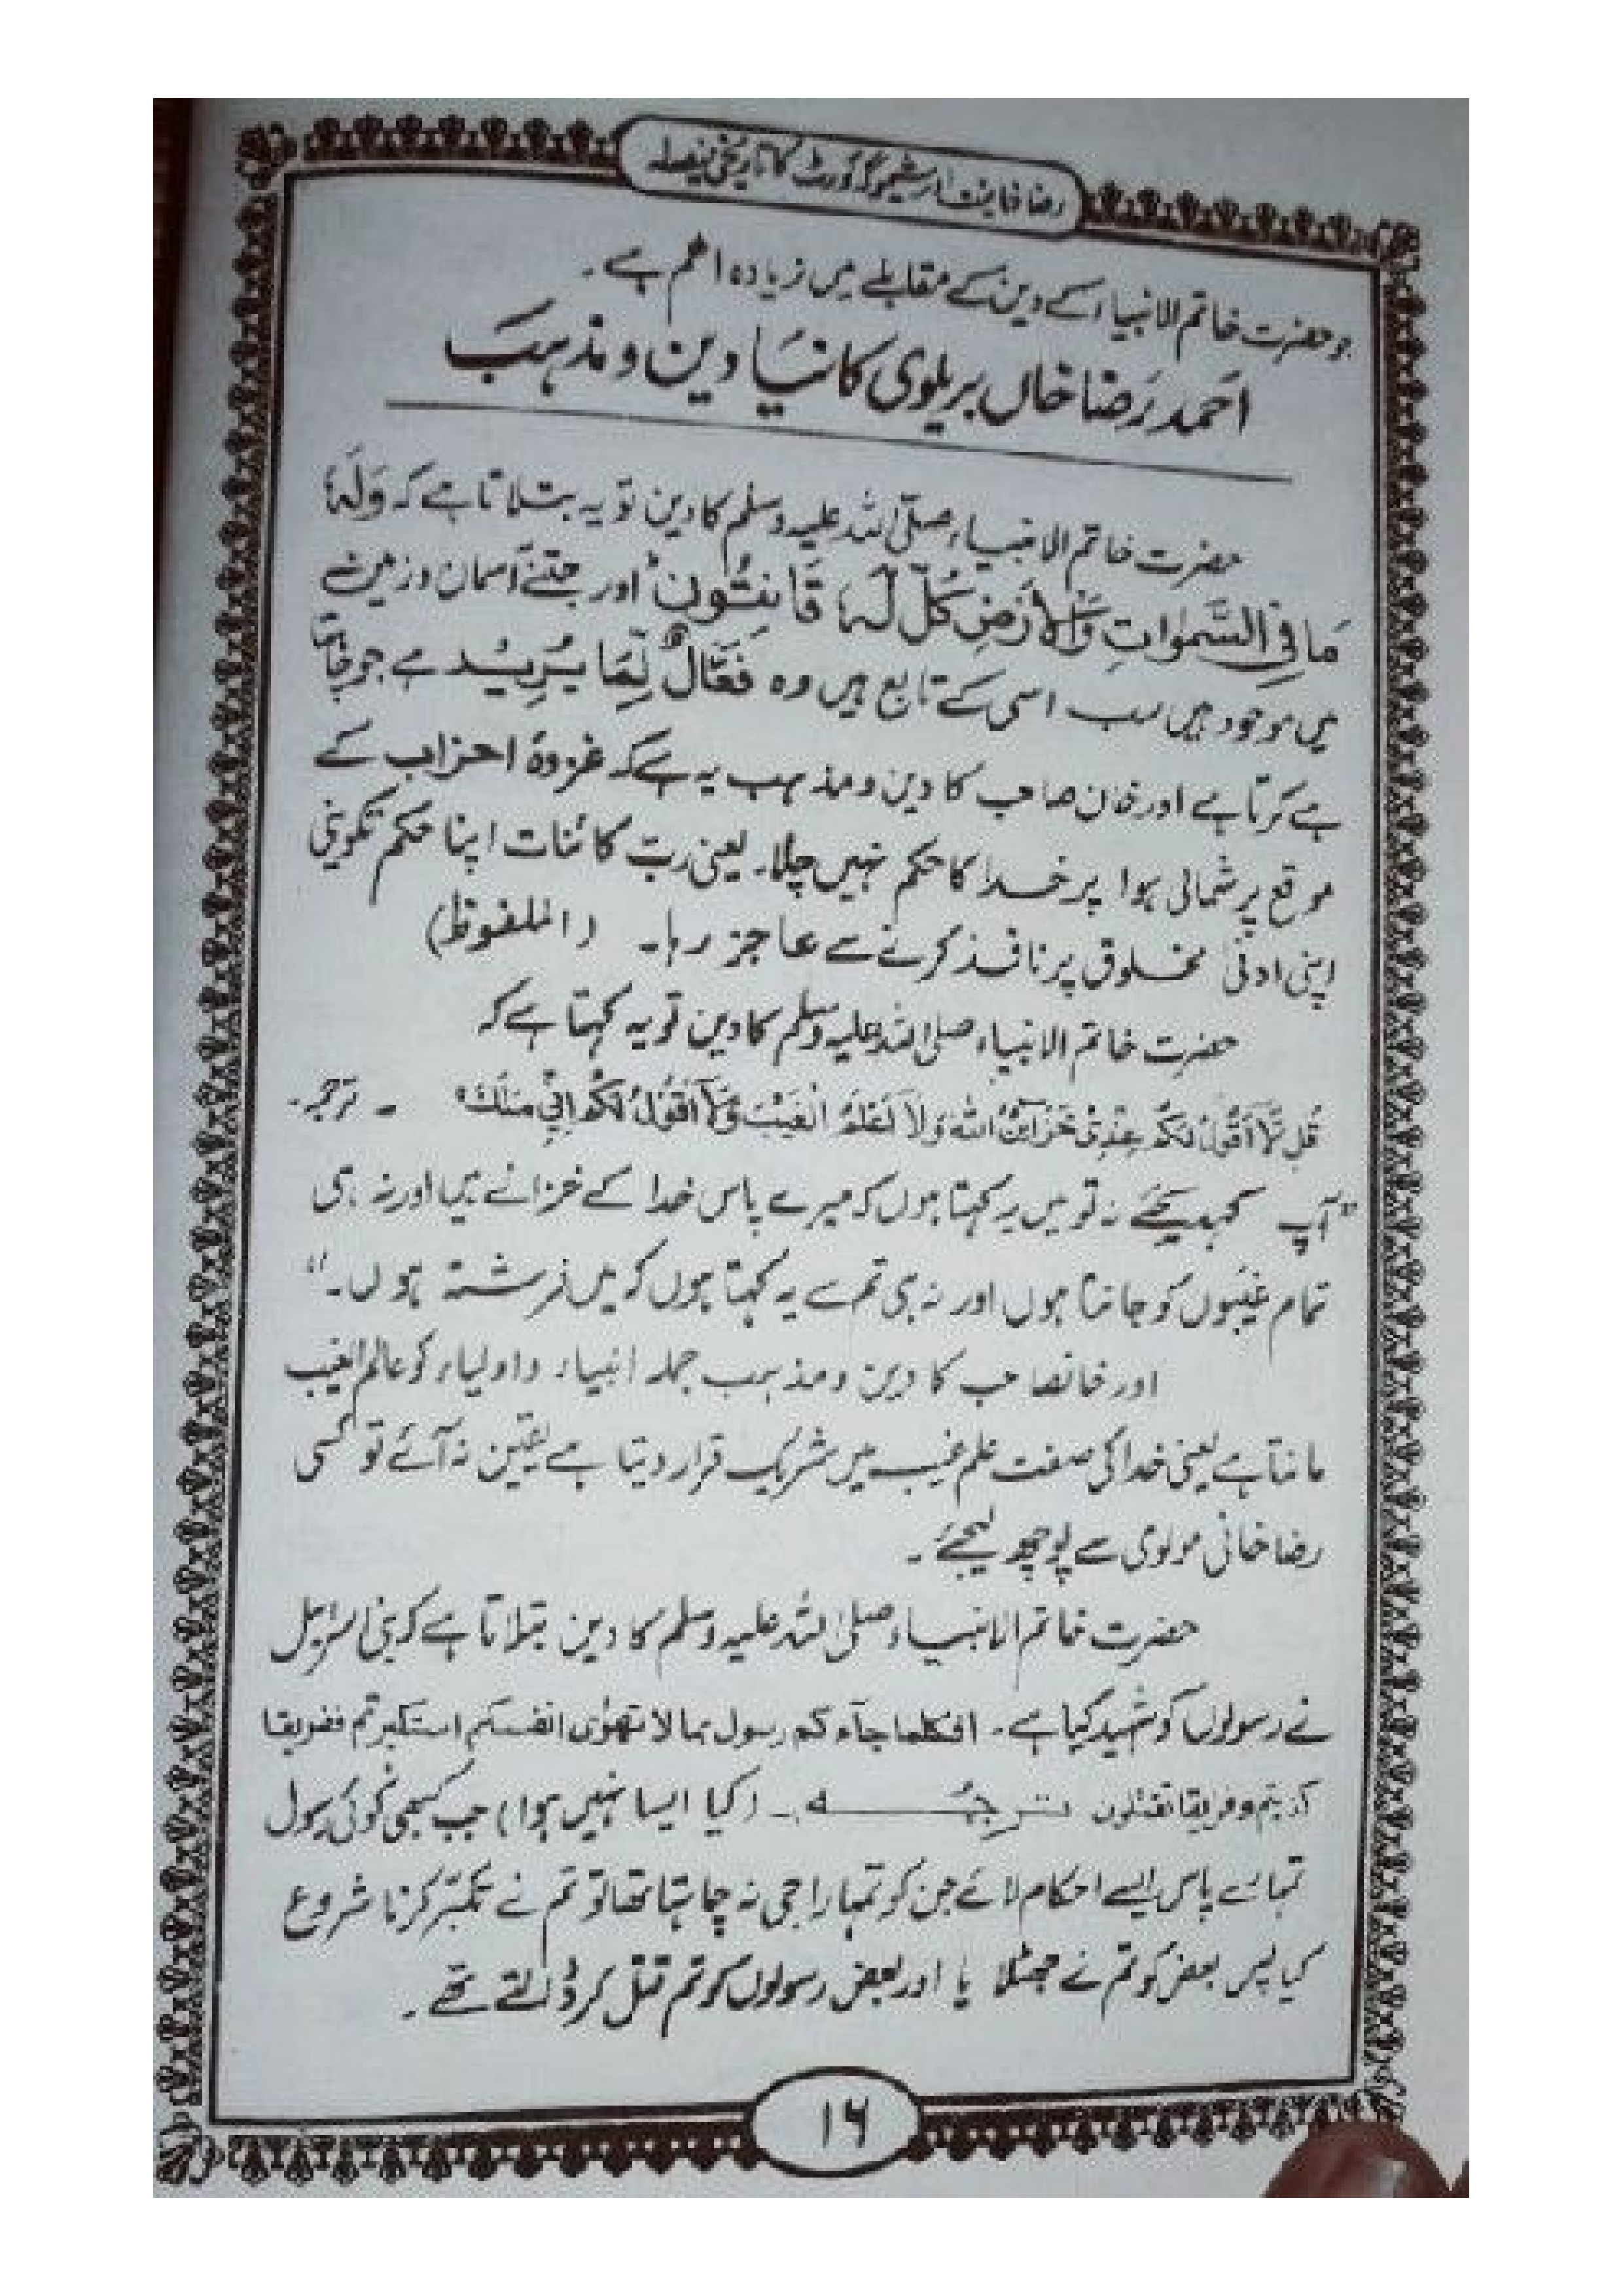 جو حضرت خاتم الانبیاء کے دین کے مقابلے میں زیادہ اہم ہے۔
احمد رَضا خاں بریلوی کا نیَا دین و مذہبَ
حضرت خاتم الانبیاء صلّی اللہ علیہ وسلم کا دین تو یہ بتلاتا ہے کہ وَلَہٗ
مَا فِی السَّمٰوَاتِ وَالْاَرْضِ کُلٌّ لَّہٗ قَانِتُونَ اور جتنے آسمان و زمین
میں موجود ہیں سب اسی کے تابع ہیں وہ فَعَّالٌ لِّمَا یُرِیْد ہے جو چاہتا
ہے کرتا ہے اور خان صاحب کا دین و مذہب یہ ہے کہ غزوۂ احزاب کے
موقع پر شمالی ہوا پر خدا کا حکم نہیں چلا۔ یعنی ربّ کائنات اپنا حکم تکوینی
اپنی ادنیٰ مخلوق پر نافذ کرنے سے عاجز رہا۔ (الملفوظ)
حضرت خاتم الانبیاء صلی اللہ علیہ وسلم کا دین تو یہ کہتا ہے کہ
قُل لَّا اَقُوْلُ لَکُمْ عِنْدِیْ خَزَآئِنُ اللّٰہِ وَلَا اَعْلَمُ الْغَیْبَ وَلَا اَقُوْلُ لَکُمْ اِنِّیْ مَلَکٌ ۔ ترجمہ۔
"آپ کہہ دیجئے نہ تو میں یہ کہتا ہوں کہ میرے پاس خدا کے خزانے ہیں اور نہ ہی
تمام غیبوں کو جانتا ہوں اور نہ ہی تم سے یہ کہتا ہوں کہ میں فرشتہ ہوں۔"
اور خانصاحب کا دین و مذہب جملہ انبیاء و اولیاء کو عالم الغیب
مانتا ہے یعنی خدا کی صفت علم غیب میں شریک قرار دیتا ہے یقین نہ آئے تو کسی
رضا خانی مولوی سے پوچھ لیجئے۔
حضرت خاتم الانبیاء صلی اللہ علیہ وسلم کا دین بتلاتا ہے کہ بنی اسرائیل
نے رسولوں کو شہید کیا ہے۔ افکلما جآء کم رسول بما لا تھوٰی انفسکم استکبرتم ففریقا
کذبتم و فریقا تقتلون ترجمہ ۔ (کیا ایسا نہیں ہوا) جب کبھی کوئی رسول
تمہارے پاس ایسے احکام لائے جن کو تمہارا جی نہ چاہتا تھا تو تم نے تکبّر کرنا شروع
کی پس بعض کو تم نے جھٹلا یا اور بعض رسولوں کو تم قتل کر ڈالتے تھے۔
۱۶